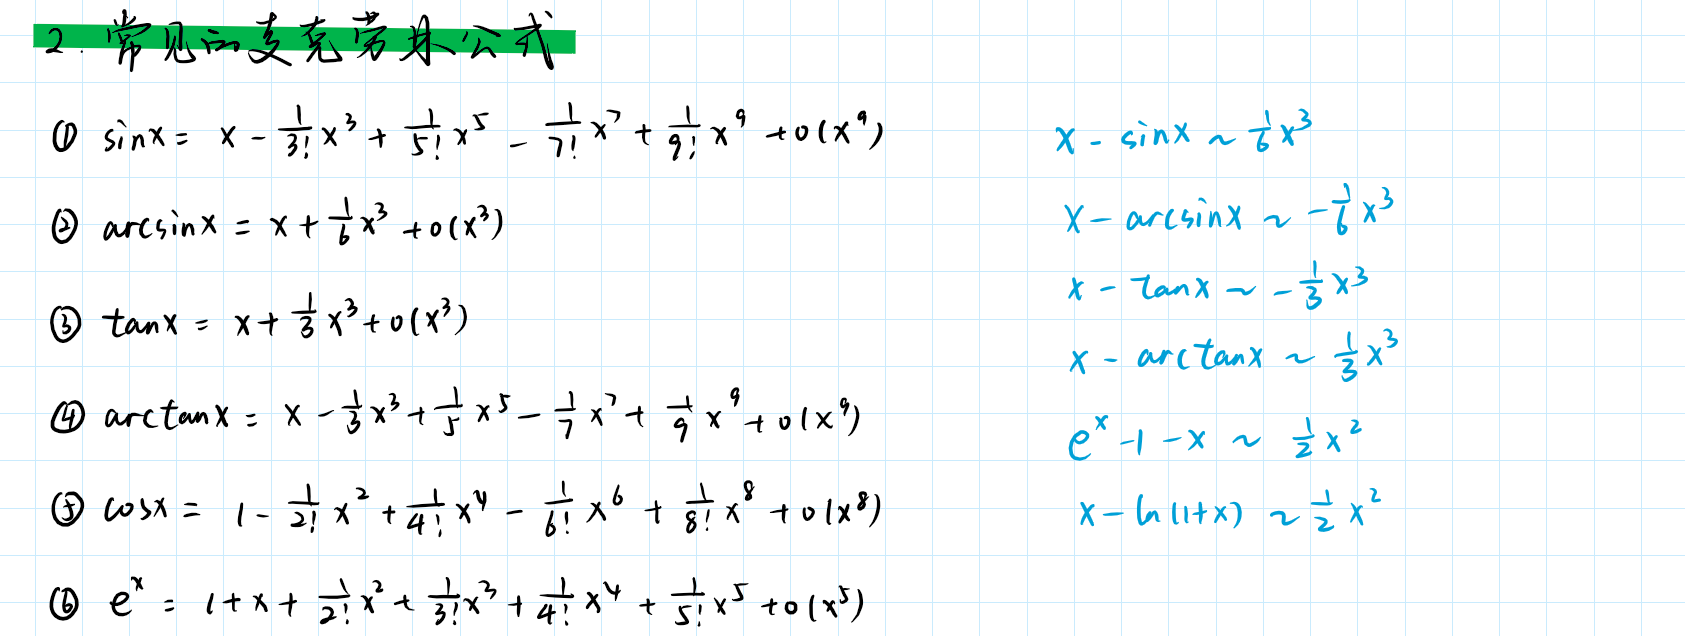 2. 常见的麦克劳林公式
① sinx = x - 1/3! x³ + 1/5! x⁵ - 1/7! x⁷ + 1/9! x⁹ + o(x⁹)
② arcsinx = x + 1/6 x³ + o(x³)
③ tanx = x + 1/3 x³ + o(x³)
④ arctanx = x - 1/3 x³ + 1/5 x⁵ - 1/7 x⁷ + 1/9 x⁹ + o(x⁹)
⑤ cosx = 1 - 1/2! x² + 1/4! x⁴ - 1/6! x⁶ + 1/8! x⁸ + o(x⁸)
⑥ eˣ = 1 + x + 1/2! x² + 1/3! x³ + 1/4! x⁴ + 1/5! x⁵ + o(x⁵)
x - sinx ~ 1/6 x³
x - arcsinx ~ -1/6 x³
x - tanx ~ -1/3 x³
x - arctanx ~ 1/3 x³
eˣ - 1 - x ~ 1/2 x²
x - ln(1+x) ~ 1/2 x²